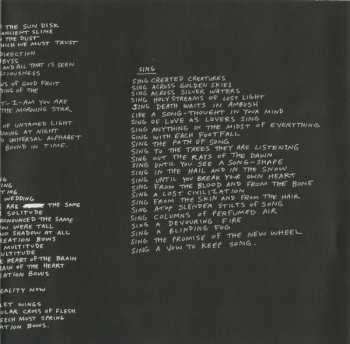 THE SUN DISK
ANCIENT SLIME
THE DUST
WHICH WE MUST TRUST
DIRECTION
ABYSS
AND ALL THAT IS SEEN
OF GOOD FRUIT
OF THE
I-AM YOU ARE
THE MORNING STAR
OF UNTAMED LIGHT
AT NIGHT
UNIVERSAL ALPHABET
BOUND IN TIME.
WEDDING
ARE THE SAME
SOLITUDE
THE SAME
YOU WERE TALL
NO SHADOW AT ALL
CREATION BOWS
MULTITUDE
MULTITUDE
HEART OF THE BRAIN
BRAIN OF THE HEART
CREATION BOWS
REALITY NOW
LET WINGS
CROSS OF FLESH
MUST SPRING
CREATION BOWS.
SING
SING CREATED CREATURES
SING ACROSS GOLDEN SKIES
SING ACROSS SILVER WATERS
SING HOLY STREAMS OF LOST LIGHT
SING DEATH WAITS IN AMBUSH
LIKE A SONG-THOUGHT IN YOUR MIND
SING OF LOVE AS LOVERS SING
SING ANYTHING IN THE MIDST OF EVERYTHING
SING WITH EACH FOOTFALL
SING THE PATH OF SONG
SING TO THE TREES THEY ARE LISTENING
SING OUT THE RAYS OF THE DAWN
SING UNTIL YOU SEE A SONG-SHAPE
SING IN THE HAIL AND IN THE SNOW
SING UNTIL YOU BREAK YOUR OWN HEART
SING FROM THE BLOOD AND FROM THE BONE
SING A LOST CIVILIZATION
SING FROM THE SKIN AND FROM THE HAIR
SING ATOP SLENDER STILTS OF SONG
SING COLUMNS OF PERFUMED AIR
SING A DEVOURING FIRE
SING A BLINDING FOG
SING THE PROMISE OF THE NEW WHEEL
SING A VOW TO KEEP SONG.